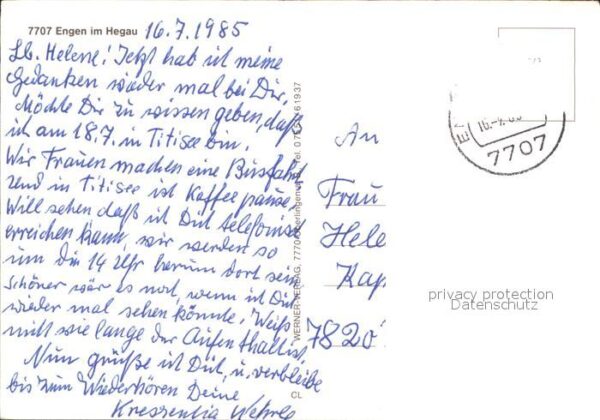 7707 Engen im Hegau 16.7.1985
Lb. Helene! Jetzt hab ich meine
Gedanken wieder mal bei Dir,
Möchte Dir zu wissen geben, daß
ich am 18.7. in Titisee bin.
Wir Frauen machen eine Busfahrt
und in Titisee ist Kaffee pause,
Will sehen daß ich Dich telefonisch
erreichen kann, wir werden so
um die 14 Uhr herum dort sein
Schöner wär es noch, wenn ich Dich
wieder mal sehen könnte, Weiß
nicht wie lange der Aufenthalt ist,
Nun grüße ich Dich, u. verbleibe
bis zum Wiederhören Deine
Kreszentia Wehrle
WERNER-VERLAG, 7770
61937
CL
An
Frau
Hele
Kap
7820
7707
privacy protection
Datenschutz